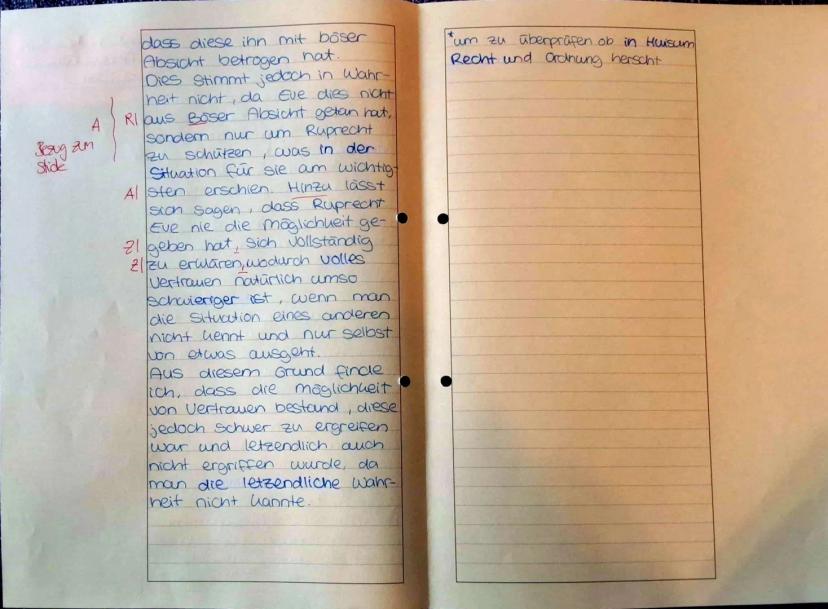 dass diese ihn mit böser
Absicht betrogen hat.
Dies stimmt jedoch in Wahr-
heit nicht, da Eve dies nicht
R| aus Böser Absicht getan hat,
A
sondern nur um Ruprecht
Bezug zum
Stück
zu schützen, was in der
Situation für sie am wichtig-
A| sten erschien. Hinzu lässt
sich sagen, dass Ruprecht
Eve nie die möglichkeit ge-
Z| geben hat, sich vollständig
Z| zu erklären, wodurch volles
Vertrauen natürlich umso
schwieriger ist, wenn man
die Situation eines anderen
nicht kennt und nur selbst
von etwas ausgeht.
Aus diesem Grund finde
ich, dass die möglichkeit
von Vertrauen bestand, diese
jedoch schwer zu ergreifen
war und letzendlich auch
nicht ergriffen wurde, da
man die letzendliche Wahr-
heit nicht kannte.
*um zu überprüfen ob in Huisum
Recht und Ordnung herscht